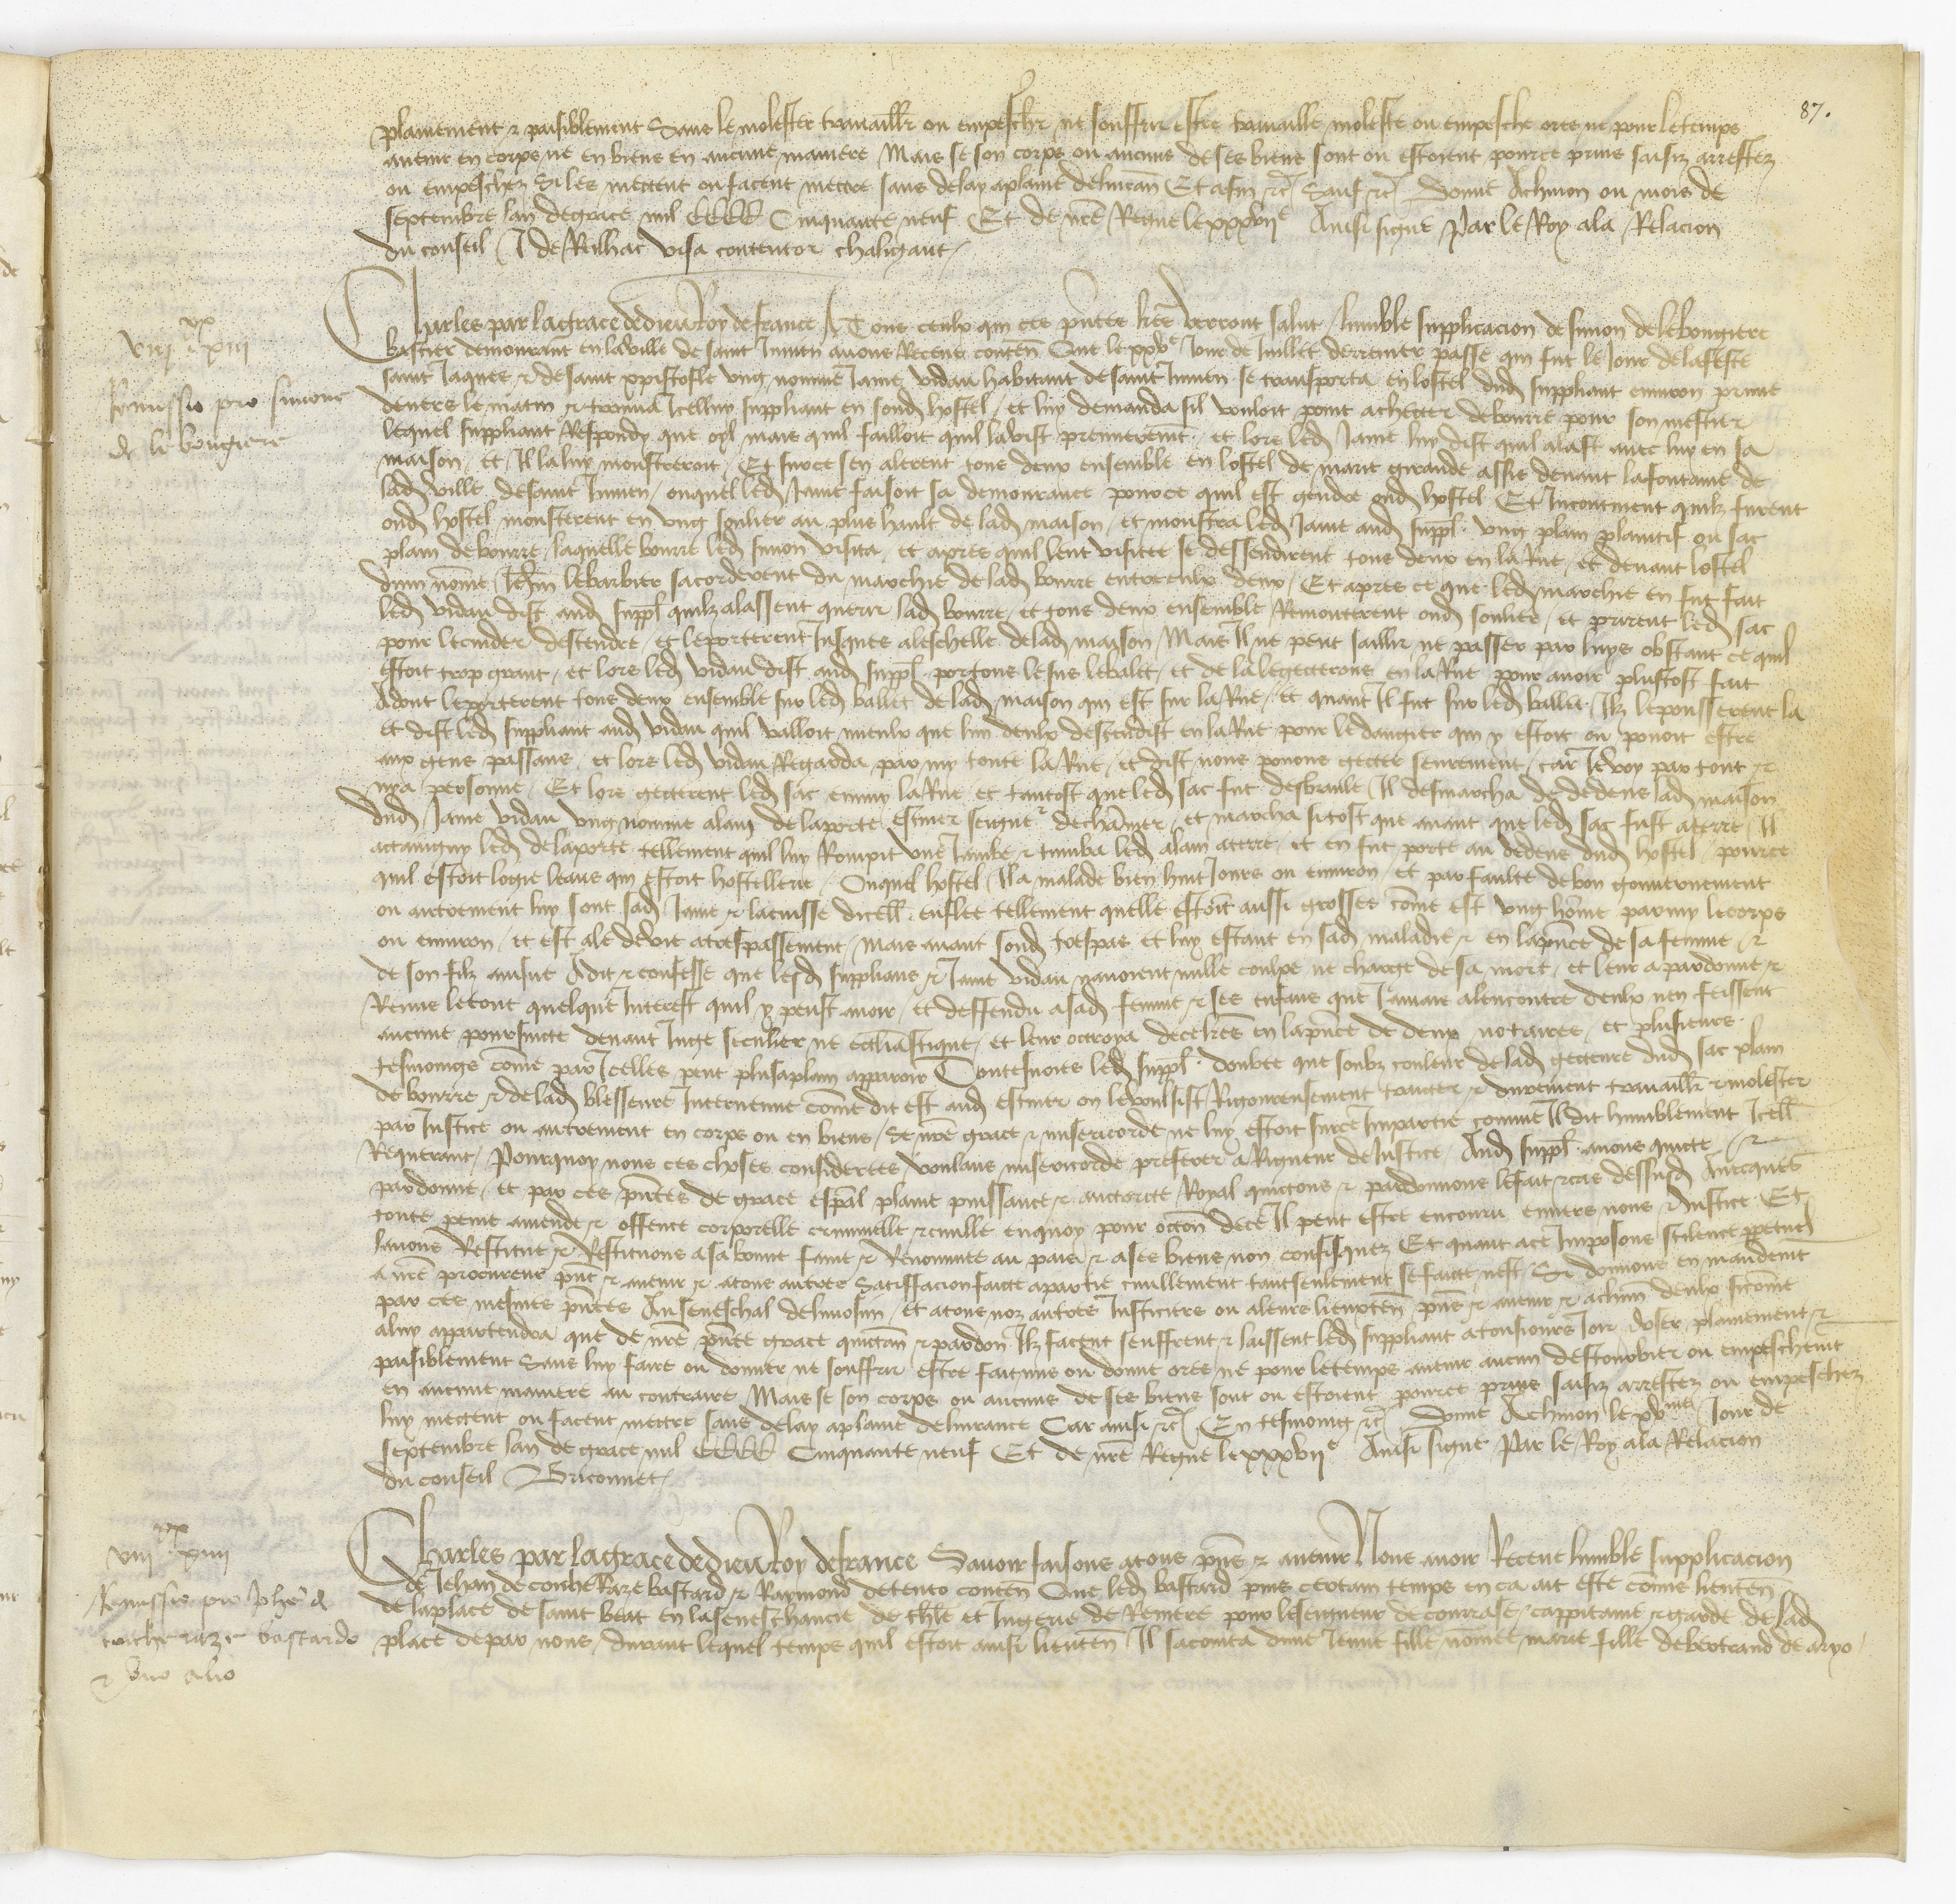 87.
plainement & paisiblement Sans le molester travaillr ou empeschr ne souffrir estre travaille moleste ou empesche ores ne pour le temps
avenir en corps ne en biens en aucune maniere Mais se son corps ou aucuns de ses biens sont ou estoient pource prins saisiz arrestez
ou empeschez Si les mectent ou facent mectre sans delay a plaine delivran Et afin &c Sauf &c Donne A chinon ou mois de
septembre lan de grace mil CCCC Cinquante neuf Et de nre Regne le xxxvije Ainsi signe Par le Roy a la Relacion
du conseil J de Reilhac visa contentor chaligaut
viij xx xiij
Remissio pro simone
de le bougiere
Charles par la grace de dieu Roy de france A Tous ceulx qui ces pntes lres verront salut humble supplicacion de simon de lebougiere
bastier demourant en la ville de saint Junien avons Receue conten Que le xxve Jour de Juillet derrenier passe qui fut le Jour de la feste
saint Jaques & de saint xpistofle ung nomme Jame vidau habitant de saint Junien se transporta en lostel dud suppliant environ prime
devers le matin & trouva Icelluy suppliant en sond hostel et luy demanda sil vouloit point achecter de bourre pour son mestier
lequel suppliant Respondy que oyl mais quil failloit quil la vist premierement et lors led Jame luy dist quil alast avec luy en sa
maison et Il la luy monstreroit Et surce sen alerent tous deux ensemble en lostel de marie girande assis devant la fontaine de
lad ville de saint Junien ouquel led Jame faisoit sa demourance pource quil est gendre oud hostel Et Incontinent quilz furent
oud hostel monsterent en ung soulier au plus hault de lad maison et monstra led Jame aud suppl ung plain plantif ou sac
plain de bourre laquelle bourre led simon visita et apres quil leut visitee se dessendirent tous deux en la Rue et devant lostel
dun nome Jehin lebarbier sacorderent du marchie de lad bourre entreeulx deux Et apres ce que led marchie en fut fait
led vidau dist aud suppl quilz alassent querir lad bourre et tous deux ensemble Remonterent oud soulier et prirent led sac
pour le cuider descendre et le porterent Jusques a leschelle de lad maison Mais Il ne peut saillir ne passer par luys obstant ce quil
estoit trop grant et lors led vidau dist aud suppl portons le sus le balet et de la le gecterons en la Rue pour avoir plustost fait
Adont le porterent tous deux ensemble sur led ballet de lad maison qui est sur la Rue et quant Il fut sur led ballet Ilz le pousserent la
et dist led suppliant aud vidau quil valloit mieulx que lun deulx descendist en la Rue pour le dangier qui y estoit ou povoit estre
aux gens passans et lors led vidau Regarda par my toute la Rue et dist nous povons gecter seurement car Je voy par tout &
ny a personne Et lors gecterent led sac enmy la Rue et tantost que led sac fut desbranle Il desmarcha de dedens lad maison
dud Jame vidau ung nomme alain de laporte escuier seigneur de chamier et marcha sitost que avant que led sac fust a terre Il
actaingny led de laporte tellement quil luy Rompit une Jambe & tumba led alain a terre et en fut porte au dedens dud hostel pource
quil estoit logie leans qui estoit hostellerie Ouquel hostel Il a malade bien huit Jours ou environ et par faulte de bon gouvernement
ou autrement luy sont sad Jame & la cuisse dicell enflee tellement quelle estoit aussi grosses come est ung home parmy le corps
ou environ et est ale de vie a trespassement Mais avant sond trespas et luy estant en sad maladie & en la pnce de sa femme &
de son filz ainsne A dit & confesse que lesd supplians & Jame vidau navoient nulle coulpe ne charge de sa mort et leur a pardonne &
Remis le tout quelque Interest quil y peust avoir et deffendu a sad femme & ses enfans que Jamais alencontre deulx nen feissent
aucune poursuicte devant Juge seculier ne ecclesiastique et leur octroya de ce lres en la pnce de deux notaires et plusieurs
tesmoings come par Icelles peut plus a plain apparoir Toutesvoies led suppl doubte que soubz couleur de lad gecteure dud sac plain
de bourre & de lad blesseure Intervenue come dit est aud escuier on le voulsist Rigoureusement traicter & durement travaillr & molester
par Justice ou autrement en corps ou en biens Se nre grace & misericorde ne luy estoit surce Impartie comme Il dit humblement Icell
Requerant Pourquoy nous ces choses considerees voulans misericorde preferer a Rigueur de Justice Aud suppl avons quicte &
pardonne et par ces pntes de grace espal plaine puissance & auctorite Royal quictons & pardonnons le fait & cas dessusd Avecques
toute peine amende & offence corporelle criminelle & civille en quoy pour occon de ce Il peut estre encouru envers nous & Justice Et
lavons Restitue & Restituons a sa bonne fame & Renommee au pais & a ses biens non confisquez Et quant a ce Imposons scilence perpetuel
a nre procureur pnt & avenir & a tous autres Satisfacion faicte a partie civillement tantseulement se faicte nest Si donnons en mandemt
par ces mesmes pntes Au seneschal de limosin et a tous noz autres Justiciers ou a leurs lieuxten pns & avenir & a chun deulx sicome
a luy appartendra que de nre pnte grace quictan & pardon Ilz facent seuffrent & laissent led suppliant a tousjours Joir & user plainement &
paisiblement Sans luy faire ou donner ne souffrir estre fait mis ou donne ores ne pour le temps avenir aucun destourbier ou empeschemt
en aucune maniere au contraire Mais se son corps ou aucuns de ses biens sont ou estoient pource prins saisiz arrestez ou empeschez
luy mectent ou facent mectre sans delay a plaine delivrance Car ainsi &c En tesmoing &c Donne A chinon le xvme Jour de
septembre lan de grace mil CCCC Cinquante neuf Et de nre Regne le xxxvije Ainsi signe Par le Roy a la Relacion
du conseil Briconnet
viij xx xiiij
Remissio pro Johe de
bastardo
& uno alio
Charles par la grace de dieu Roy de france Savoir faisons a tous pns & avenir Nous avoir Receue humble supplicacion
de Jehan de bastard & Raymond de tento conten Que led bastard puis certain temps en ca ait este come lieuten
de la place de saint beat en la seneschaucie de thle et Jugerie de Riviere pour le seigneur de courrase cappitaine & garde de lad
place de par nous durant lequel temps quil estoit ainsi lieuten Il sacointa dune Jeune fille nomee marie fille de bertrand de aryo